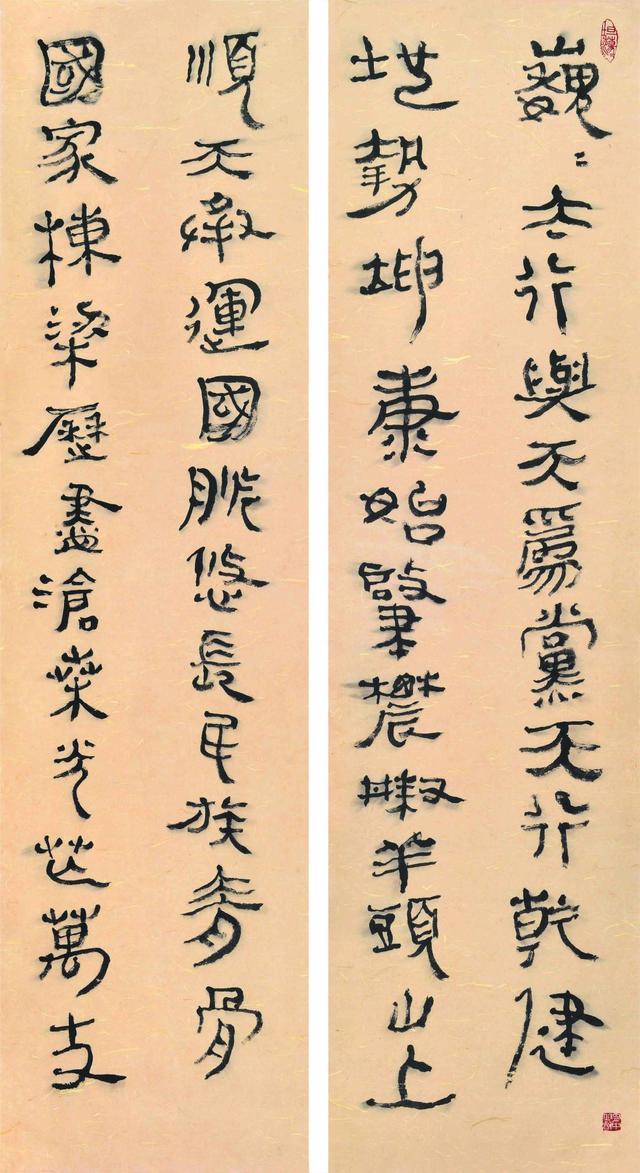 巍〻太行與天為黨天行乾健
地勢坤康始肇農羊頭山上
順天運國脈悠長民族脊骨
國家棟梁歷盡滄桑光芒萬丈